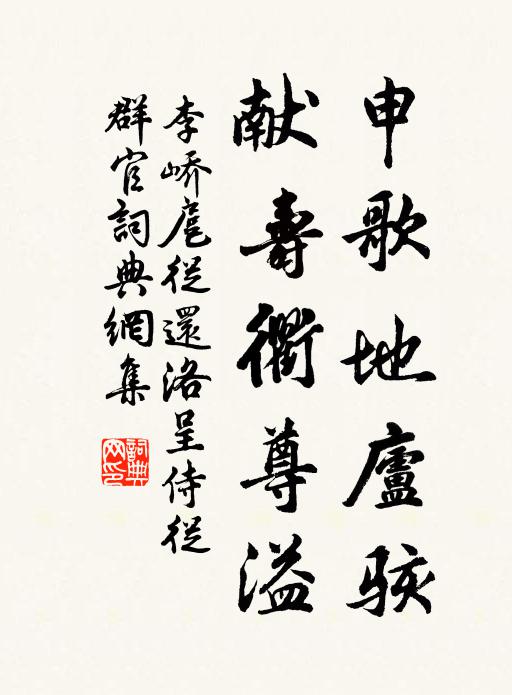 申歌地廬駭
献壽衢尊溢
李嶠扈從還洛呈侍從
群官詞典網集
詞典网印